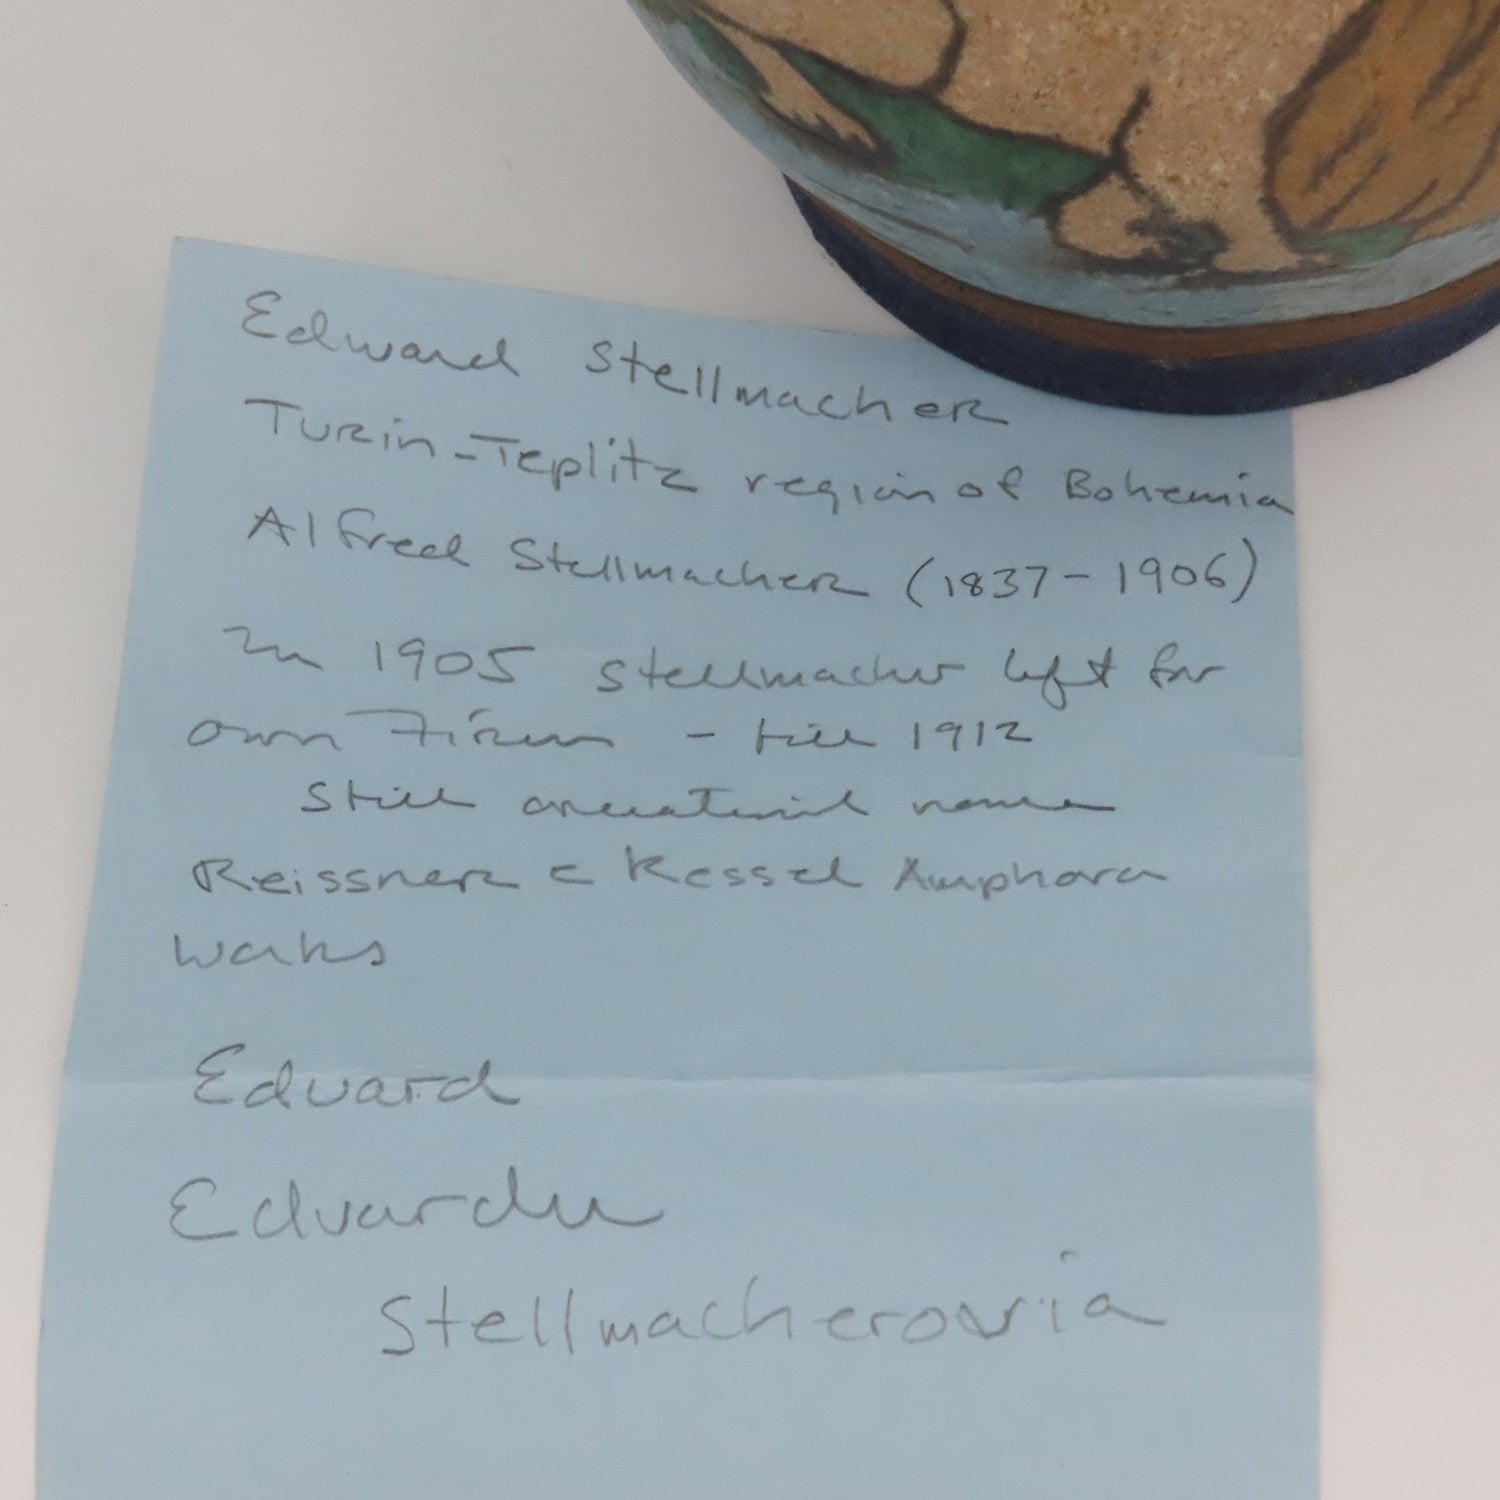 Edward Stellmacher
Turin-Teplitz region of Bohemia
Alfred Stellmacher (1837-1906)
In 1905 Stellmacher left for
own Firm - till 1912
Still name
Reissner & Kessel Amphora
Works
Eduard
Edvardu
Stellmacherovia